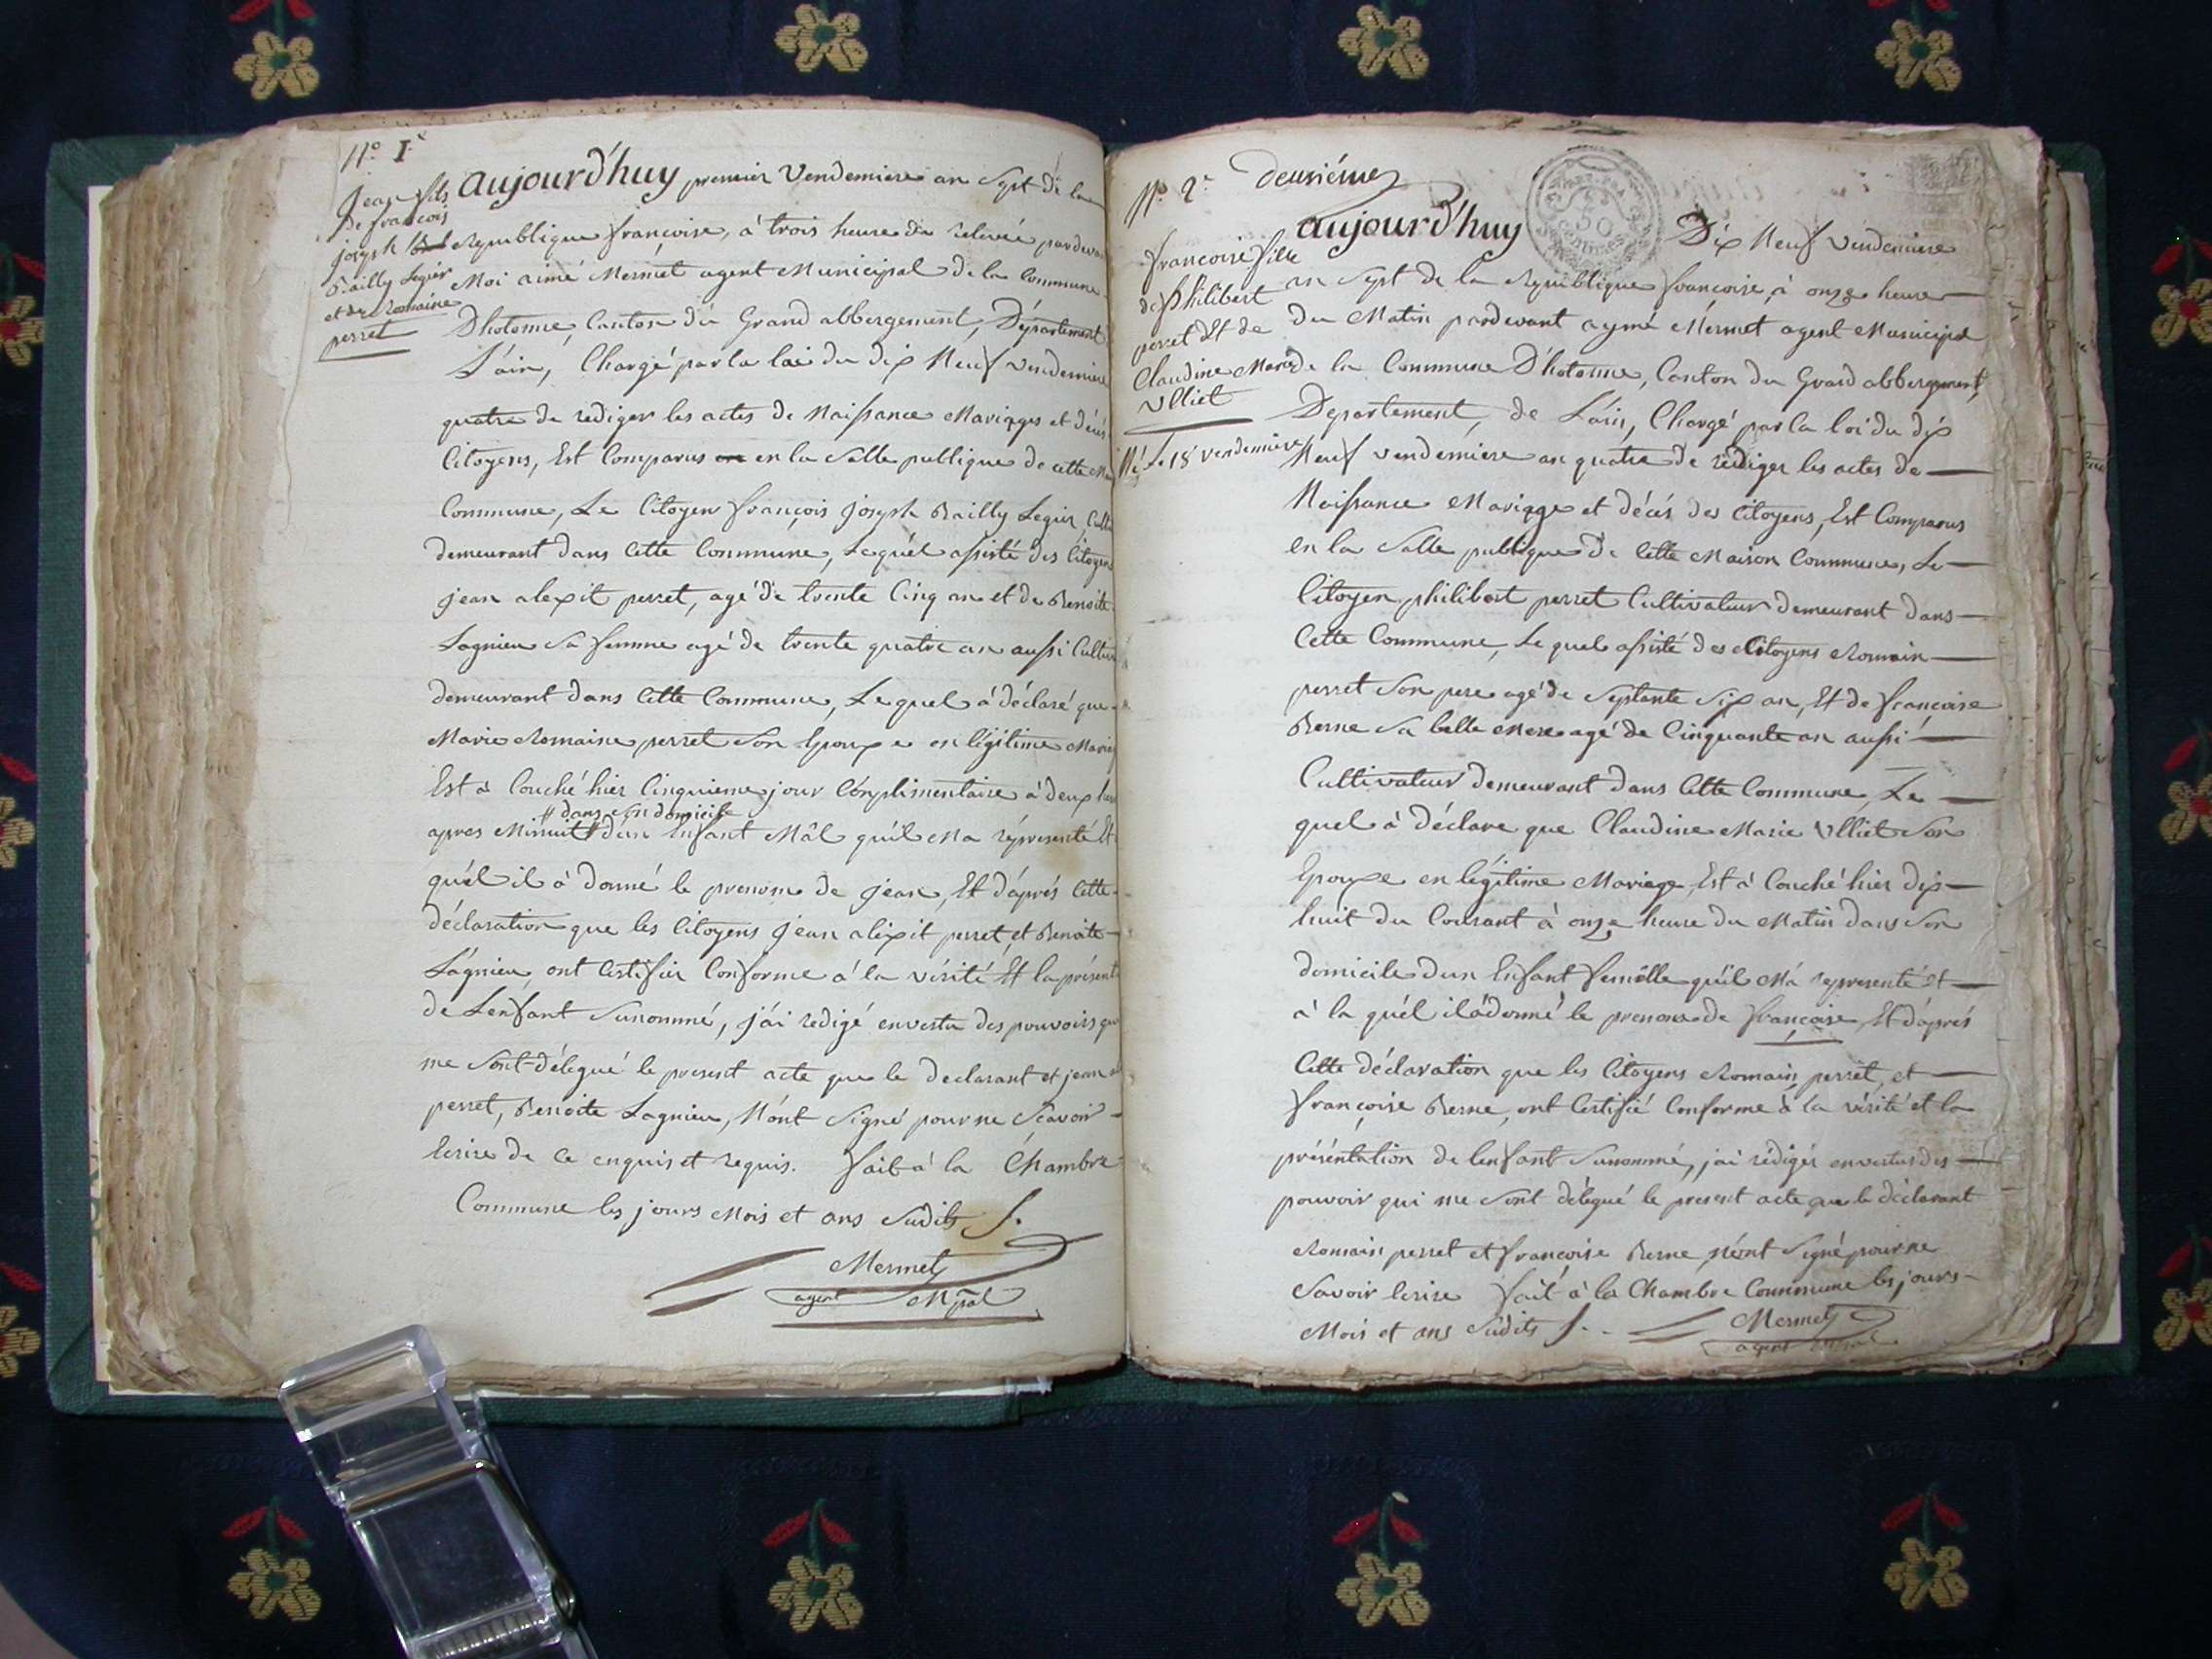 N.º 1.e
Jean fils
de francois
joseph
Bailly Legier
et de Romaine
perret
aujourd'huy premier Vendemiere an Sept de la
Republique françoise, à trois heure de relevée pardeva
Moi aimé Mermet agent Municipal de la Commune
D'hotonne, Canton du Grand abbergement, Département
L'ain, Chargé par la loi du dix Neuf vendemiere
quatre de rediger les actes de Naissance Mariages et décés
Citoyens, Est Comparus en la Salle publique de cette
Commune, Le Citoyen françois joseph Bailly Legier,
demeurant dans Cette Commune, Lequél assisté des Citoyens
jean alexit perret, agé de trente Cinq an et de Benoite
Lagnieu Sa femme agé de trente quatre an aussi Cultiv
demeurant dans Cette Commune, Le quel à déclaré que
Marie Romaine perret Son Epouxe en légitime Maria
Est à Couché hier Cinquieme jour Cómplimentaire à deux heur
# dans Son domicile
apres Minuit # dun Enfant Mâl qu'il Ma représenté Et
quél il à donné le prenom de jean, Et d'áprés Cette
déclaration que les Citoyens jean alexit perret, et Benoite
Lágnieu, ont Certifier Conforme à la vérité Et la présent
de Lenfant Sunommé, j'ái redigé envertu des pouvoirs qui
me Sont délegué le present acte que le Declarant et jean al
perret, Benoite Lagnieu, N'ónt Signé pour ne Scavoir
Ecrire de Ce enquis et requis. fait à la Chambre
Commune les jours Mois et ans Sudits
Mermet
agent Mpal
N.º 2.e Deuxiéme
françoise fille
de philibert
perret Et de
Claudine Marie
Ulliet
Né Le 18 vendemiere
50
aujourd'huy Dix Neuf Vendemiere
an Sept de la Republique francoise, à onze heure
du Matin pardevant aymé Mermet agent Municipal
de la Commune D'hotonne, Canton du Grand abbergement,
Departement, de L'áin, Chargé par la loi du dix
Neuf vendémiere an quatre de rédiger les actes de
Naissance Mariage et décés des Citoyens, Est Comparus
en la Salle publique de Cette Maison Commune, Le
Citoyen philibert perret Cultivateur demeurant dans
Cette Commune, Le quel assisté des Citoyens Romain
perret Son pere agé de Septante Six an, Et de francoise
Berne Sa belle Mere agé de Cinquante an aussi
Cultivateur demeurant dans Cette Commune, Le
quel à Déclare que Claudine Marie Ulliet Son
Epouxe en légitime Mariage, Est à Couché hier dix
huit du Courant à onze heure du Matin dans Son
domicile dun Enfant femélle qu'il M'á representé Et
à la quél il á donné le prenom de françoise, Et d'áprés
Cette déclaration que les Citoyens Romain, perret, et
françoise Berne, ont Certifié Conforme à la vérité et la
présentation de lenfant Sunommé, j'ai rédigér envertus des
pouvoir qui me Sont délegué le present acte que le déclarant
Romain perret et françoise Berne, n'ónt Signé pour ne
Savoir Ecrire fait à la Chambre Commune les jours
Mois et ans Sudits
Mermet
agent